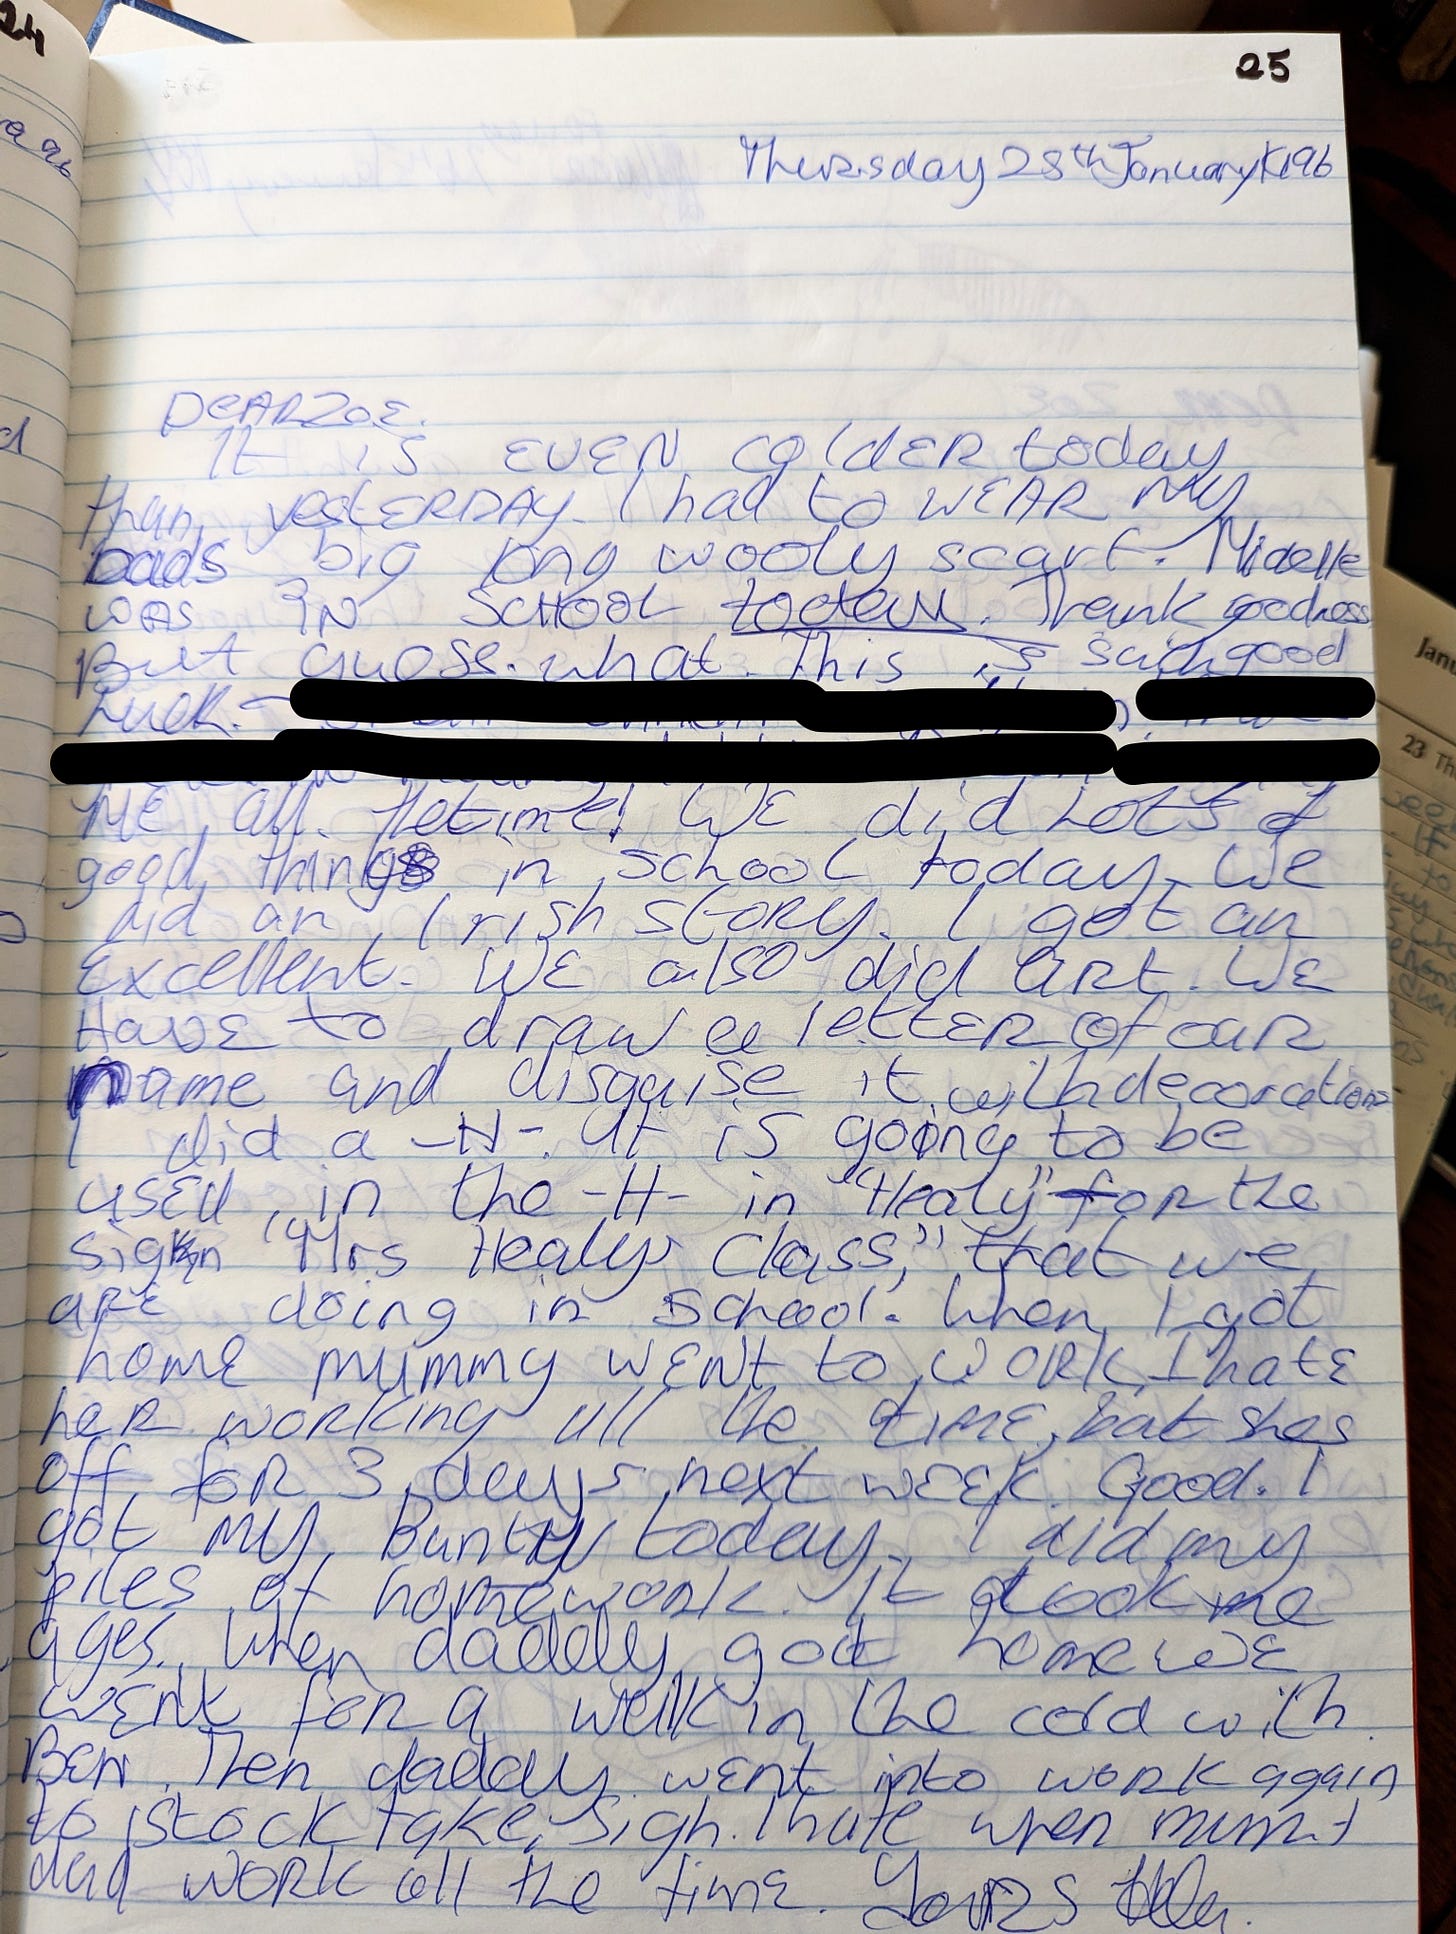 25
Thursday 25th January 1996
DEAR ZOE.
It is EVEN colder today
than yesterday. I had to WEAR my
Dads big long wooly scarf. Michelle
was in School today. Thank goodness
But guess what This is such good
Luck.-
ME all the time! WE did Lots of
good things in school today. We
did an Irish story. I got an
Excellent. WE also did art. WE
HavE to draw a letter of our
name and disguise it with decorations
I did a -N-. It is going to be
used in the -H- in "Healy" for the
sign "Mrs Healys Class," that we
are doing in school. When I got
home mummy went to work. I hate
her working all the time, but shes
off for 3 days next week. Good. I
got my Bunty today. I did my
piles of homework. It took me
ages. When daddy got home we
went for a walk in the cold with
Ben. Then daddy went into work again
to stock take, sigh. I hate when mum +
dad work all the time. Yours
23 Th
Janu